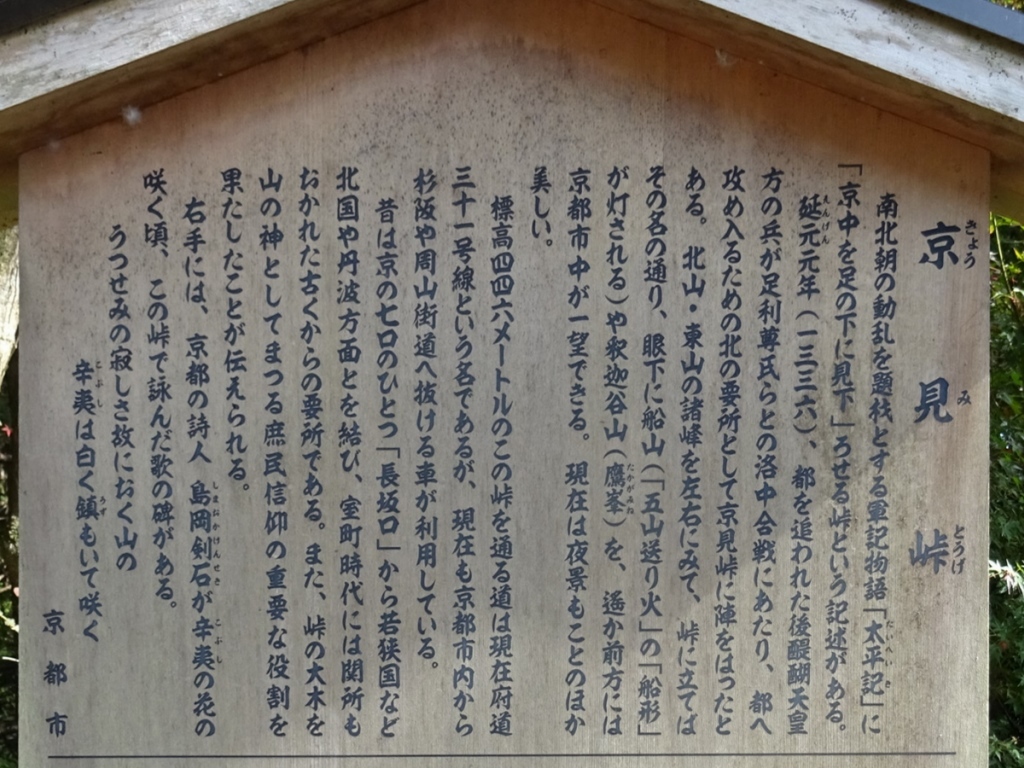 京見峠
きょうみとうげ
南北朝の動乱を題材とする軍記物語「太平記」に
たいへいき
「京中を足の下に見下」ろせる峠という記述がある。
延元元年(一三三六)、都を追われた後醍醐天皇
えんげん
方の兵が足利尊氏らとの洛中合戦にあたり、都へ
攻め入るための北の要所として京見峠に陣をはったと
ある。北山・東山の諸峰を左右にみて、峠に立てば
その名の通り、眼下に船山(「五山送り火」の「船形」
が灯される)や釈迦谷山(鷹峯)を、遥か前方には
たかがみね
京都市中が一望できる。現在は夜景もことのほか
美しい。
標高四四六メートルのこの峠を通る道は現在府道
三十一号線という名であるが、現在も京都市内から
杉阪や周山街道へ抜ける車が利用している。
昔は京の七口のひとつ「長坂口」から若狭国など
北国や丹波方面とを結び、室町時代には関所も
おかれた古くからの要所である。また、峠の大木を
山の神としてまつる庶民信仰の重要な役割を
果たしたことが伝えられる。
右手には、京都の詩人 島岡剣石が辛夷の花の
しまおかけんせき こぶし
咲く頃、この峠で詠んだ歌の碑がある。
うつせみの寂しさ故におく山の
辛夷は白く鎮もいて咲く
こぶし うず
京都市